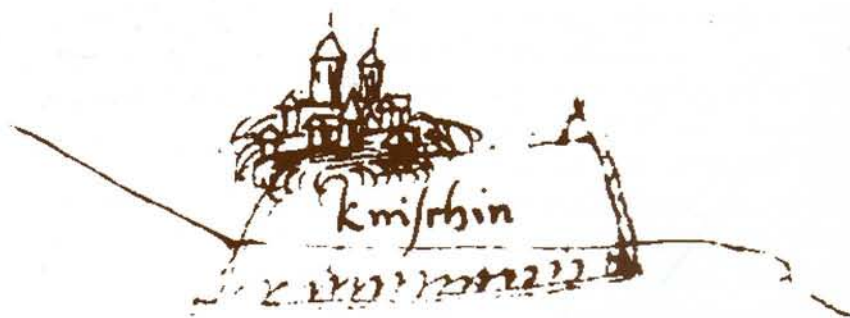 kniſchin